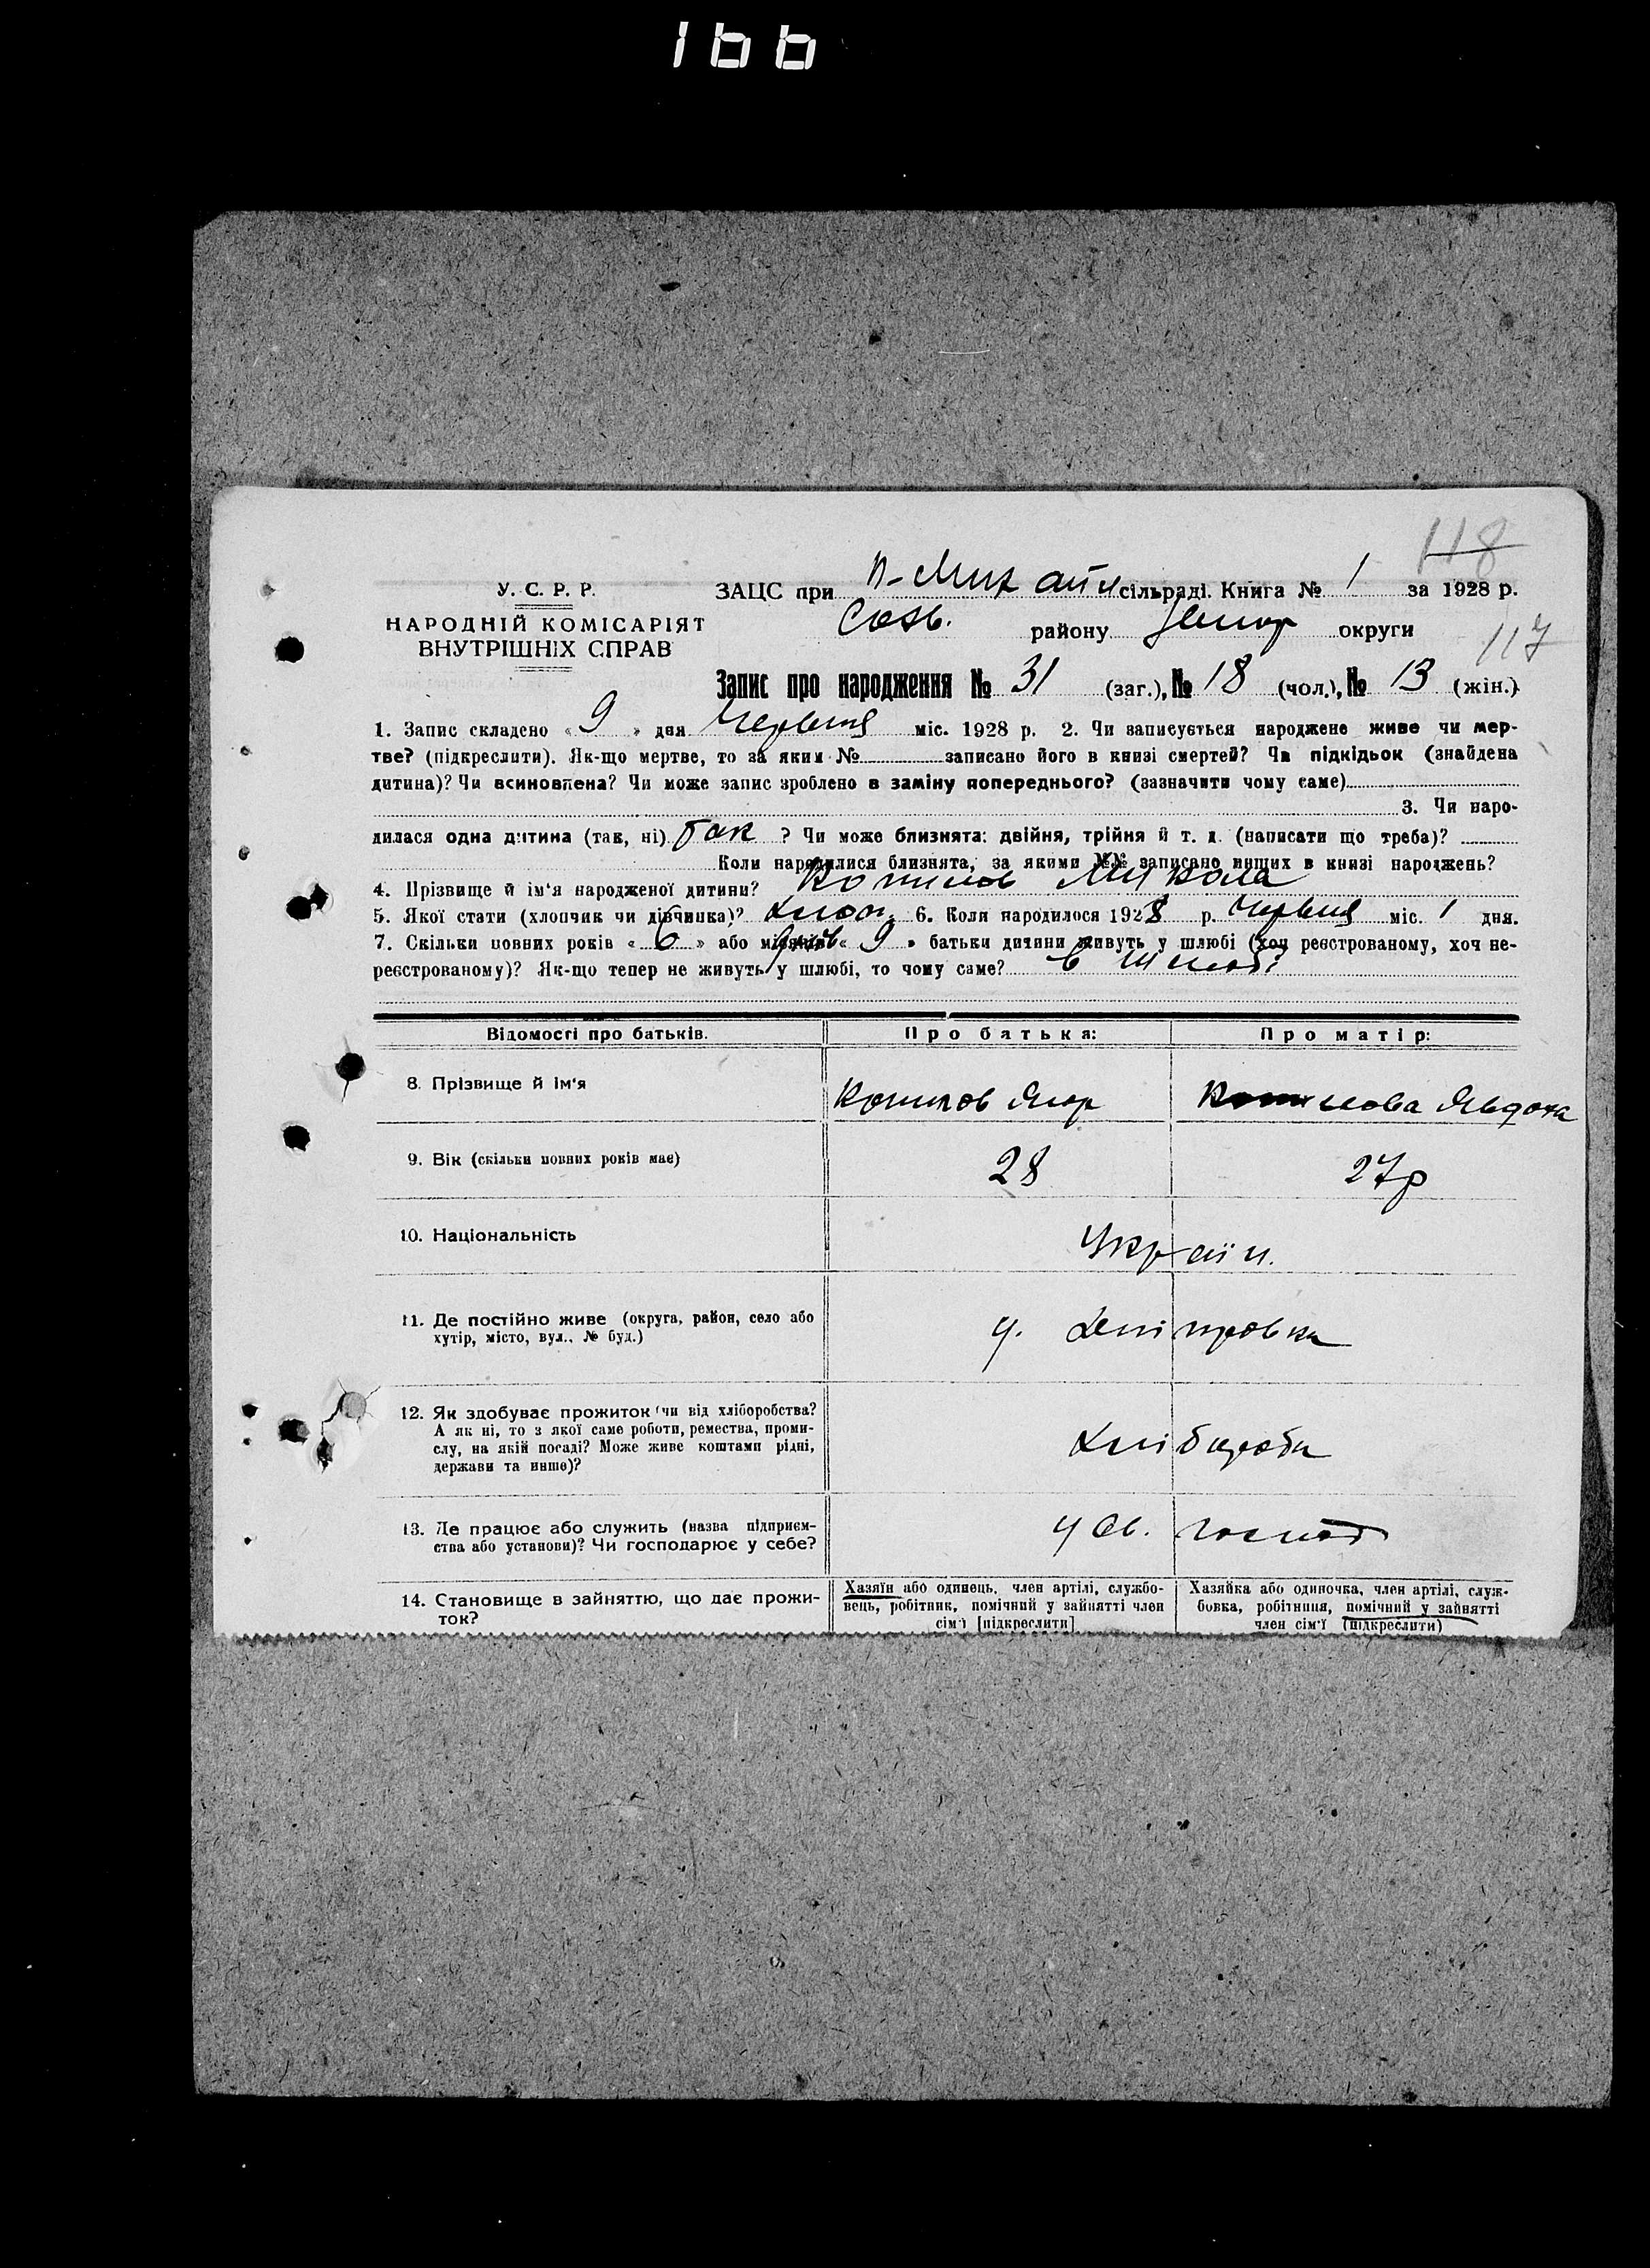 166
118
У. С. Р. Р.
НАРОДНІЙ КОМІСАРІЯТ
ВНУТРІШНІХ СПРАВ
ЗАЦС при П-Михайл сільраді. Книга № 1 за 1928 р.
району округи
117
Запис про народження № 31 (заг.), № 18 (чол.), № 13 (жін.)
1. Запис складено « 9 » дня Червня міс. 1928 р. 2. Чи записується народжене живе чи мер-
тве? (підкреслити). Як-що мертве, то за яким № записано його в книзі смертей? Чи підкідьок (знайдена
дитина)? Чи всиновлена? Чи може запис зроблено в заміну попереднього? (зазначити чому саме)
3. Чи наро-
дилася одна дитина (так, ні) так ? Чи може близнята: двійня, трійня й т. д. (написати що треба)?
Коли народилися близнята, за якими №№ записано инших в книзі народжень?
4. Прізвище й ім'я народженої дитини? Микола
5. Якої стати (хлопчик чи дівчинка)? хлоп. 6. Коли народилося 1928 р. Червня міс. 1 дня.
7. Скільки повних років « 6 » або « 9 » батьки дитини живуть у шлюбі (хоч реєстрованому, хоч не-
реєстрованому)? Як-що тепер не живуть у шлюбі, то чому саме? в шлюбі
Відомості про батьків. Про батька: Про матір:
8. Прізвище й ім'я Явдоха
9. Вік (скільки повних років має) 28 27р
10. Національність Україн.
11. Де постійно живе (округа, район, село або
хутір, місто, вул., № буд.) Дніпровка
12. Як здобуває прожиток (чи від хліборобства?
А як ні, то з якої саме роботи, ремества, проми-
слу, на якій посаді? Може живе коштами рідні,
держави та инше)? Хлібороби
13. Де працює або служить (назва підприєм-
ства або установи)? Чи господарює у себе? у св. господ
14. Становище в зайняттю, що дає прожи-
ток?
Хазяїн або одинець, член артілі, службо-
вець, робітник, помічний у зайнятті член
сім'ї [підкреслити]
Хазяйка або одиночка, член артілі, служ-
бовка, робітниця, помічний у зайнятті
член сім'ї (підкреслити)